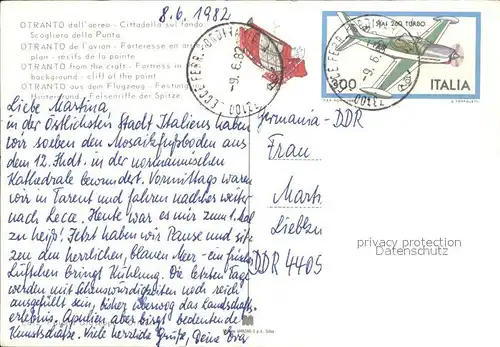 8.6.1982
OTRANTO dall'aereo - Cittadella sul fondo
Scogliera della Punta
OTRANTO de l'avion - Forteresse en arrière
plan - récifs de la pointe
OTRANTO from the craft - Fortress in the
background - cliff of the point
OTRANTO aus dem Flugzeug - Festung
Hintergrund - Felsenriffe der Spitze.
SIAI 260 TURBO
300
ITALIA
-9.6.82
73100
Liebe Martina
in der östlichsten Stadt Italiens haben
wir soeben den Mosaikfußboden aus
dem 12. Jhdt. in der normannischen
Kathedrale bewundert. Vormittags waren
wir in Tarent und fahren nachher weiter
nach Lecce. Heute war es mir zum 1. Mal
zu heiß! Jetzt haben wir Pause und sit-
zen am herrlichen, blauen Meer - ein frisches
Lüftchen bringt Kühlung. Die letzten Tage
werden mit Sehenswürdigkeiten noch reich
ausgefüllt sein, bisher überwog das Landschafts-
erlebnis. Apulien aber birgt bedeutende
Kunstschätze. Viele herzliche Grüße, Deine
Germania-DDR
Frau
Marti
Lieblau
DDR 4405
privacy protection
watermark